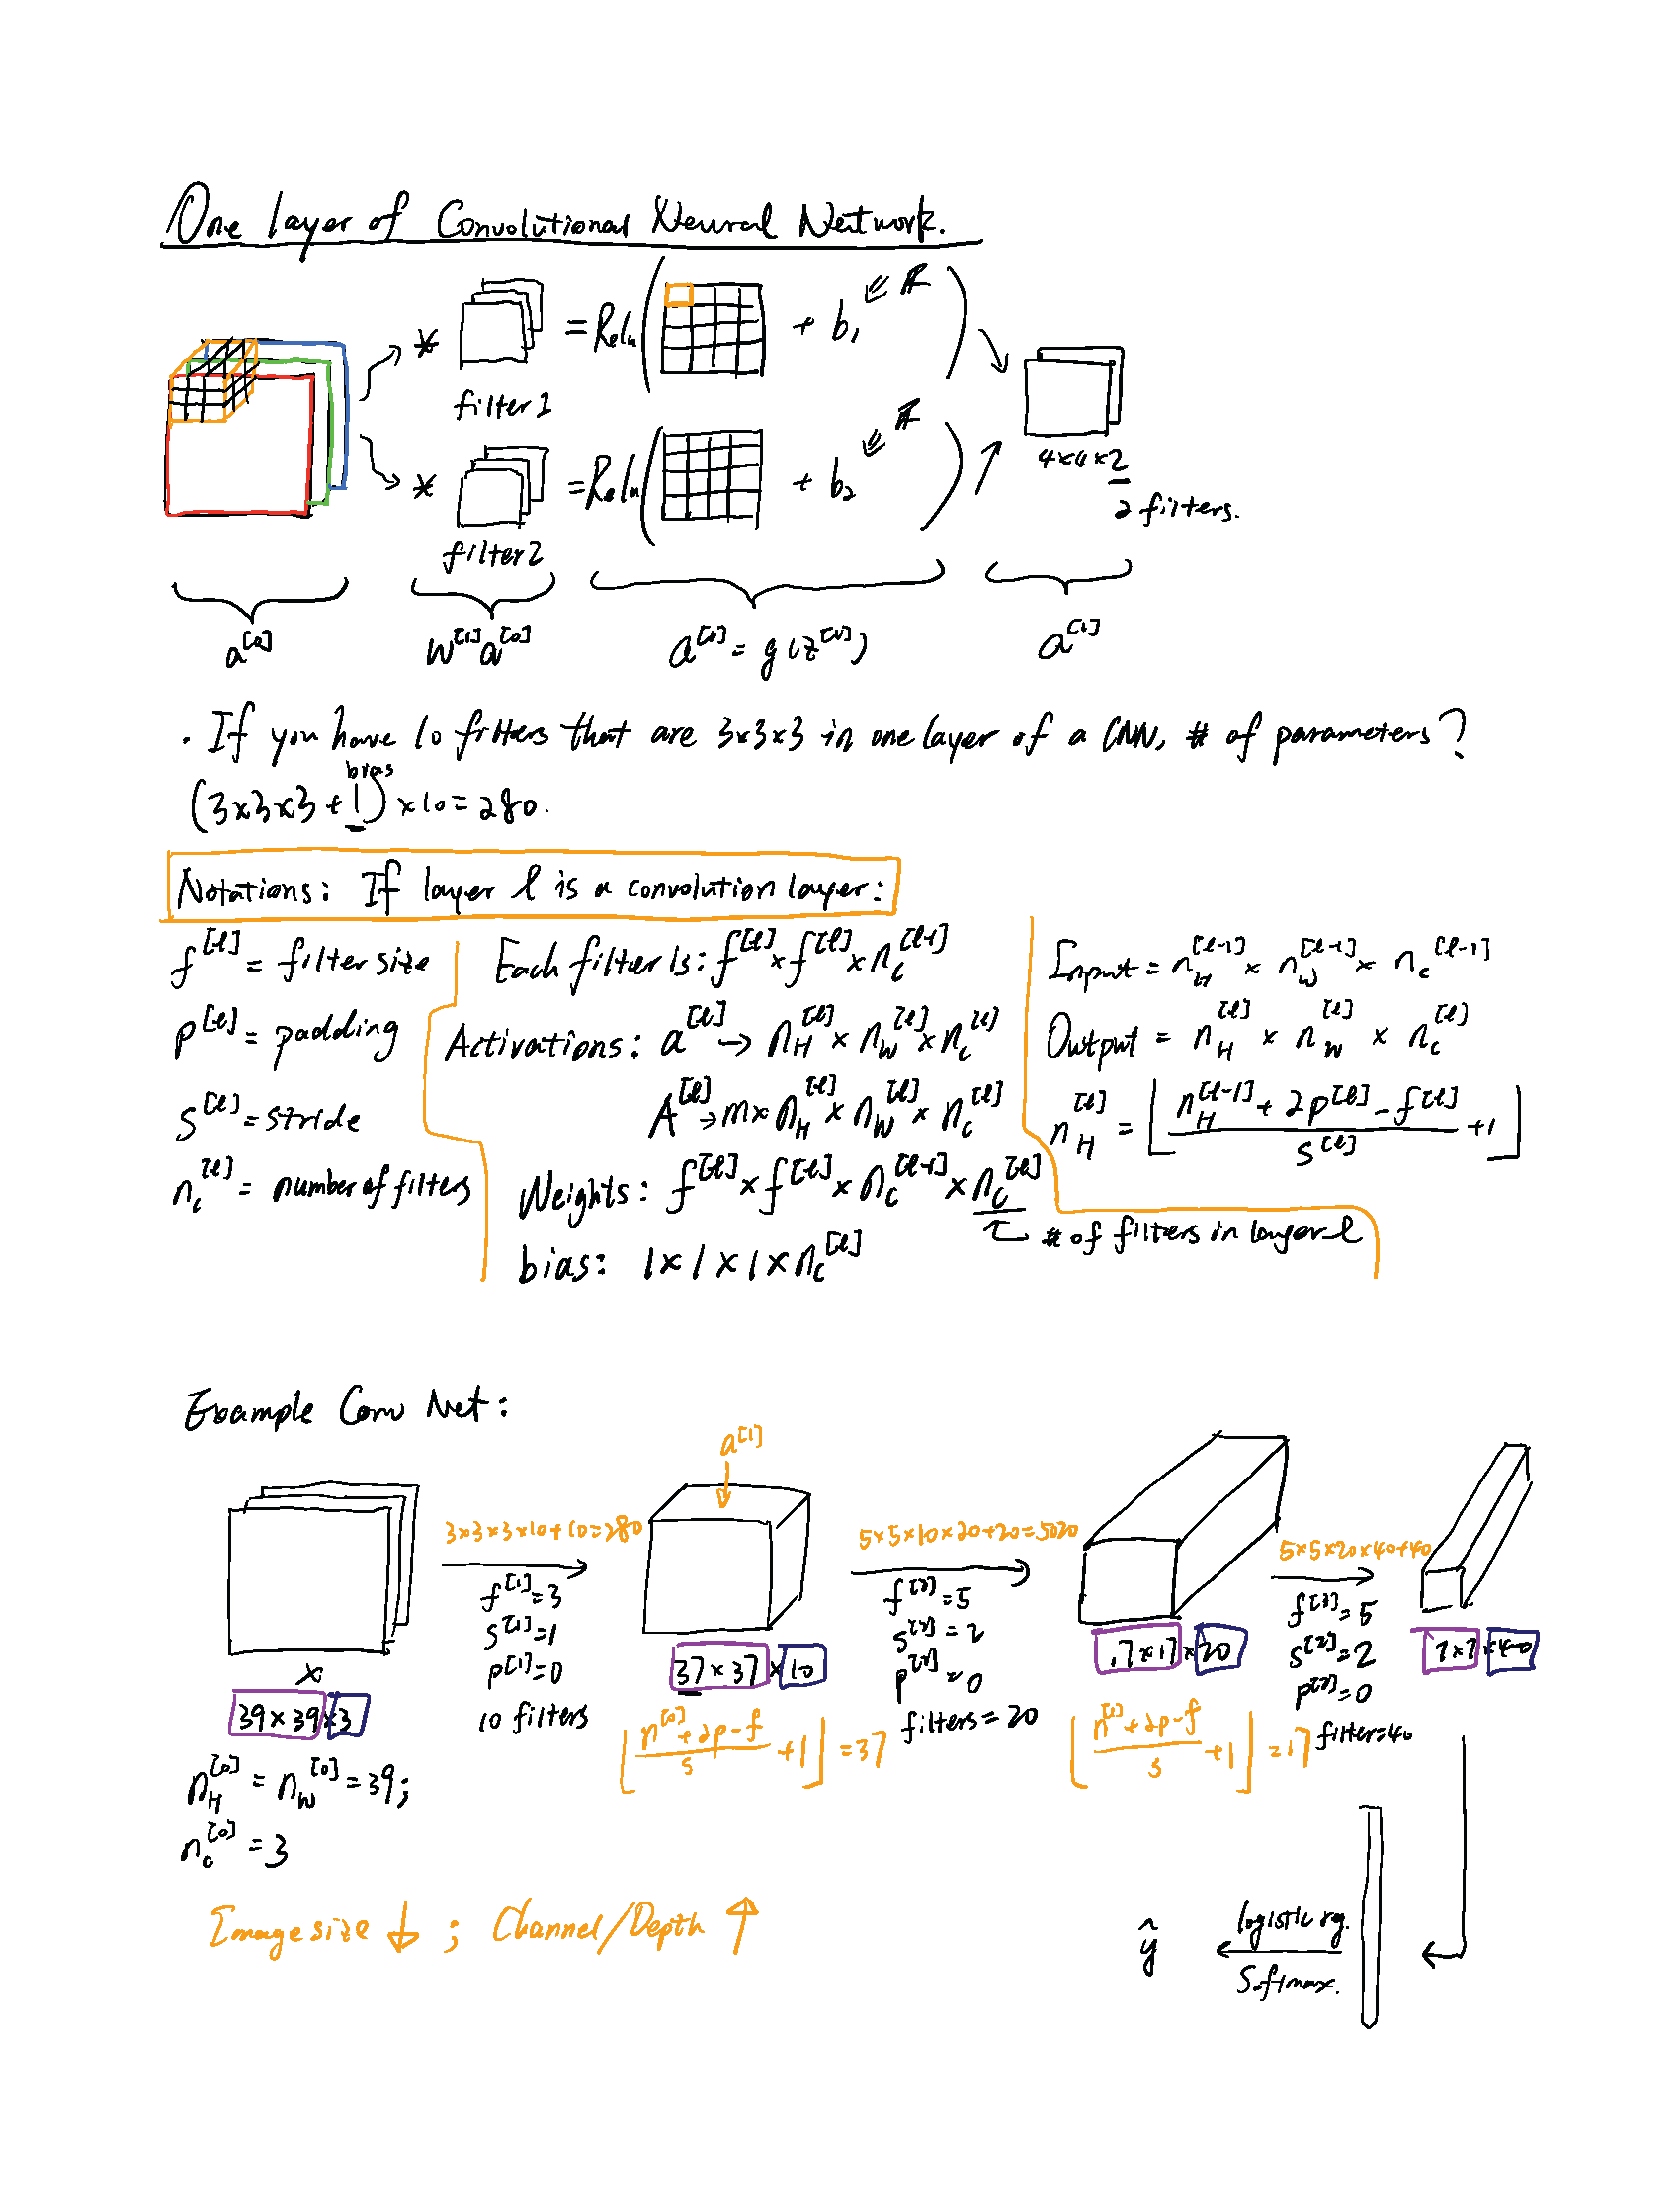 One layer of Convolutional Neural Network.
* = Relu( + b₁ ∈ ℝ )
filter 1
* = Relu( + b₂ ∈ ℝ )
filter 2
4×4×2
2 filters.
a^[0]
W^[1]a^[0]
a^[1] = g(z^[1])
a^[1]
· If you have 10 filters that are 3×3×3 in one layer of a CNN, # of parameters?
bias
(3×3×3+1)×10=280.
Notations: If layer l is a convolution layer:
f^[l] = filter size
p^[l] = padding
s^[l] = stride
n_c^[l] = number of filters
Each filter is: f^[l]×f^[l]×n_c^[l-1]
Activations: a^[l] → n_H^[l] × n_W^[l] × n_c^[l]
A^[l] → m× n_H^[l] × n_W^[l] × n_c^[l]
Weights: f^[l]×f^[l]×n_c^[l-1]×n_c^[l]
# of filters in layer l
bias: 1×1×1×n_c^[l]
Input = n_H^[l-1] × n_W^[l-1] × n_c^[l-1]
Output = n_H^[l] × n_W^[l] × n_c^[l]
n_H^[l] = ⌊(n_H^[l-1] + 2p^[l] - f^[l])/s^[l] + 1⌋
Example Conv Net:
x
39×39×3
n_H^[0] = n_W^[0] = 39;
n_c^[0] = 3
3×3×3×10+10=280
f^[1]=3
s^[1]=1
p^[1]=0
10 filters
a^[1]
37×37×10
⌊(n^[0]+2p-f)/s + 1⌋ = 37
5×5×10×20+20=5020
f^[2]=5
s^[2]=2
p^[2]=0
filters=20
17×17×20
⌊(n^[1]+2p-f)/s + 1⌋ = 17
5×5×20×40+40
f^[3]=5
s^[3]=2
p^[3]=0
filter=40
7×7×40
Image size ↓ ; Channel/Depth ↑
ŷ
logistic rg.
Softmax.